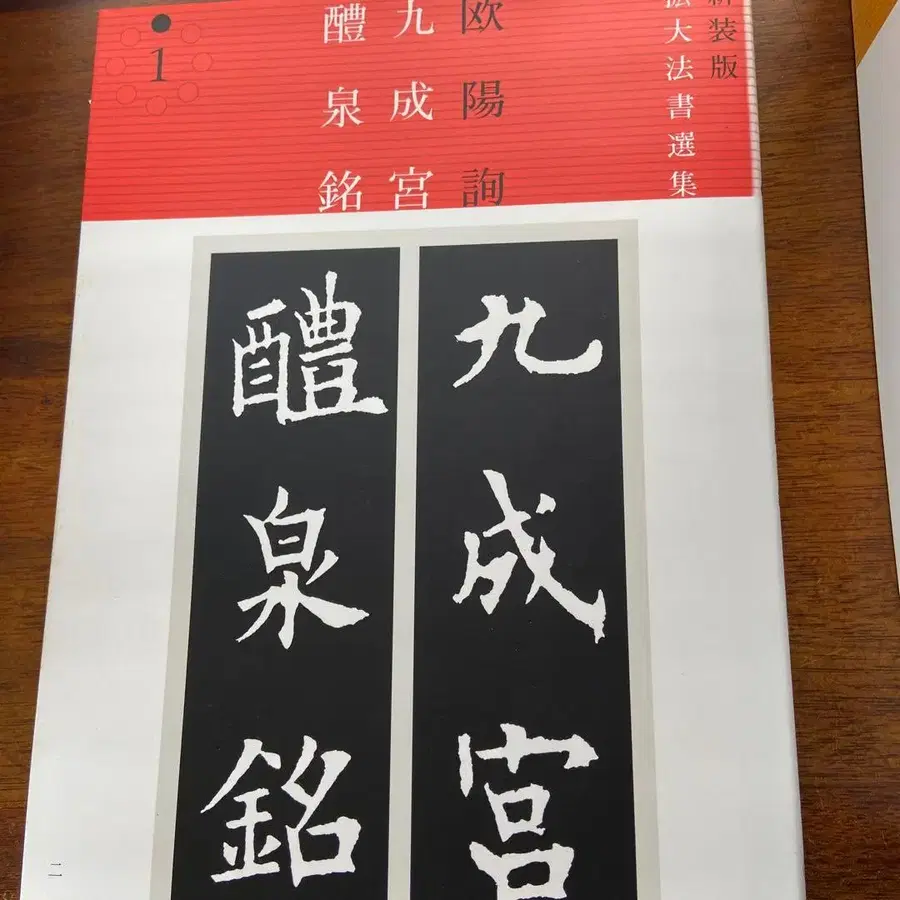 新装版
拡大法書選集
欧陽詢
九成宮
醴泉銘
1
九成宮
醴泉銘
二